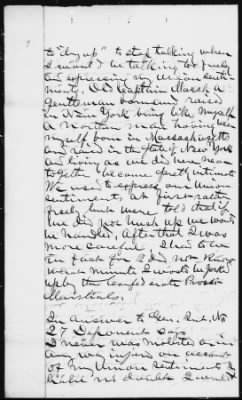 to "dry up" to stop talking when
I would be talking too freely
and expressing my Union senti-
ments. Old Captain Marsh a
gentleman born and raised
in New York being like myself
a Northern man having been
myself born in Massachusetts
and raised in the State of New York
and living as we did near near
together became pretty intimate
We used to express our Union
sentiments at first rather
freely but were told that if
we did not hush up we would
be handled, after that I was
more careful. I had to be
in fact for I did not know
what minute I would be jerked
up by the Confederate Provost
Marshals.
In Answer to Gen. Int. No
27 Deponent says
I never was molested or in
any way injured on account
of my Union sentiments &